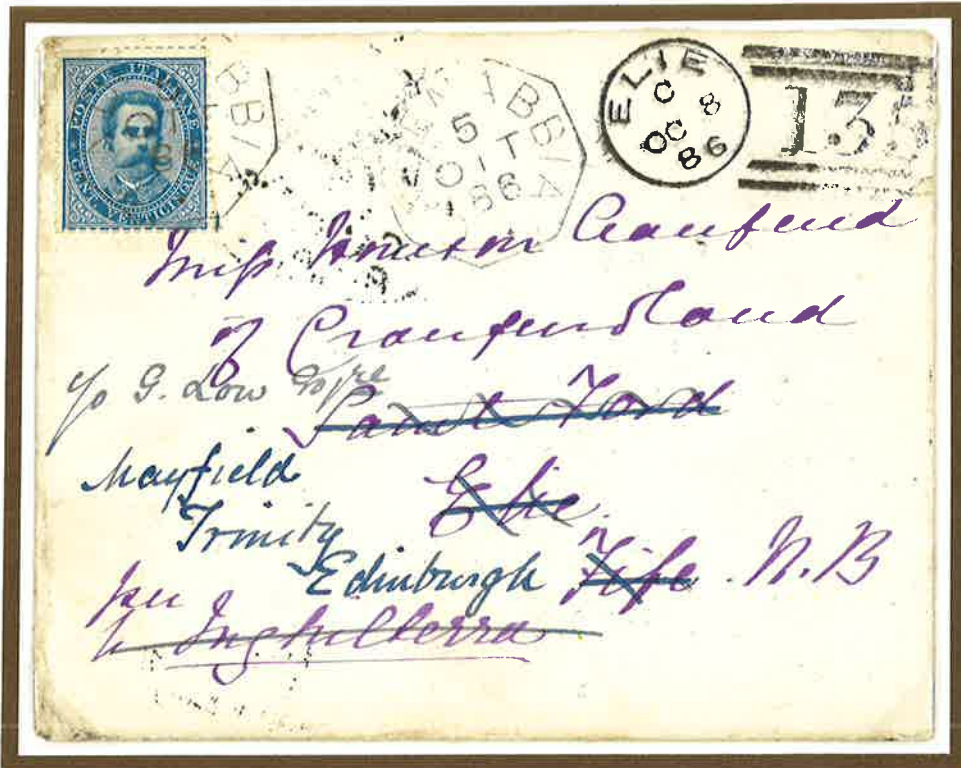 POSTE ITALIANE
CENT. VENTICINQUE
BBI
5
OTT
86
ELIE
C
OC 8
86
13
Miss Houison Craufurd
of Craufurdland
c/o G. Low Esqre
Sauch Ford
Mayfield
Elie
Trinity
Edinburgh Fife. N.B
per
Inghilterra